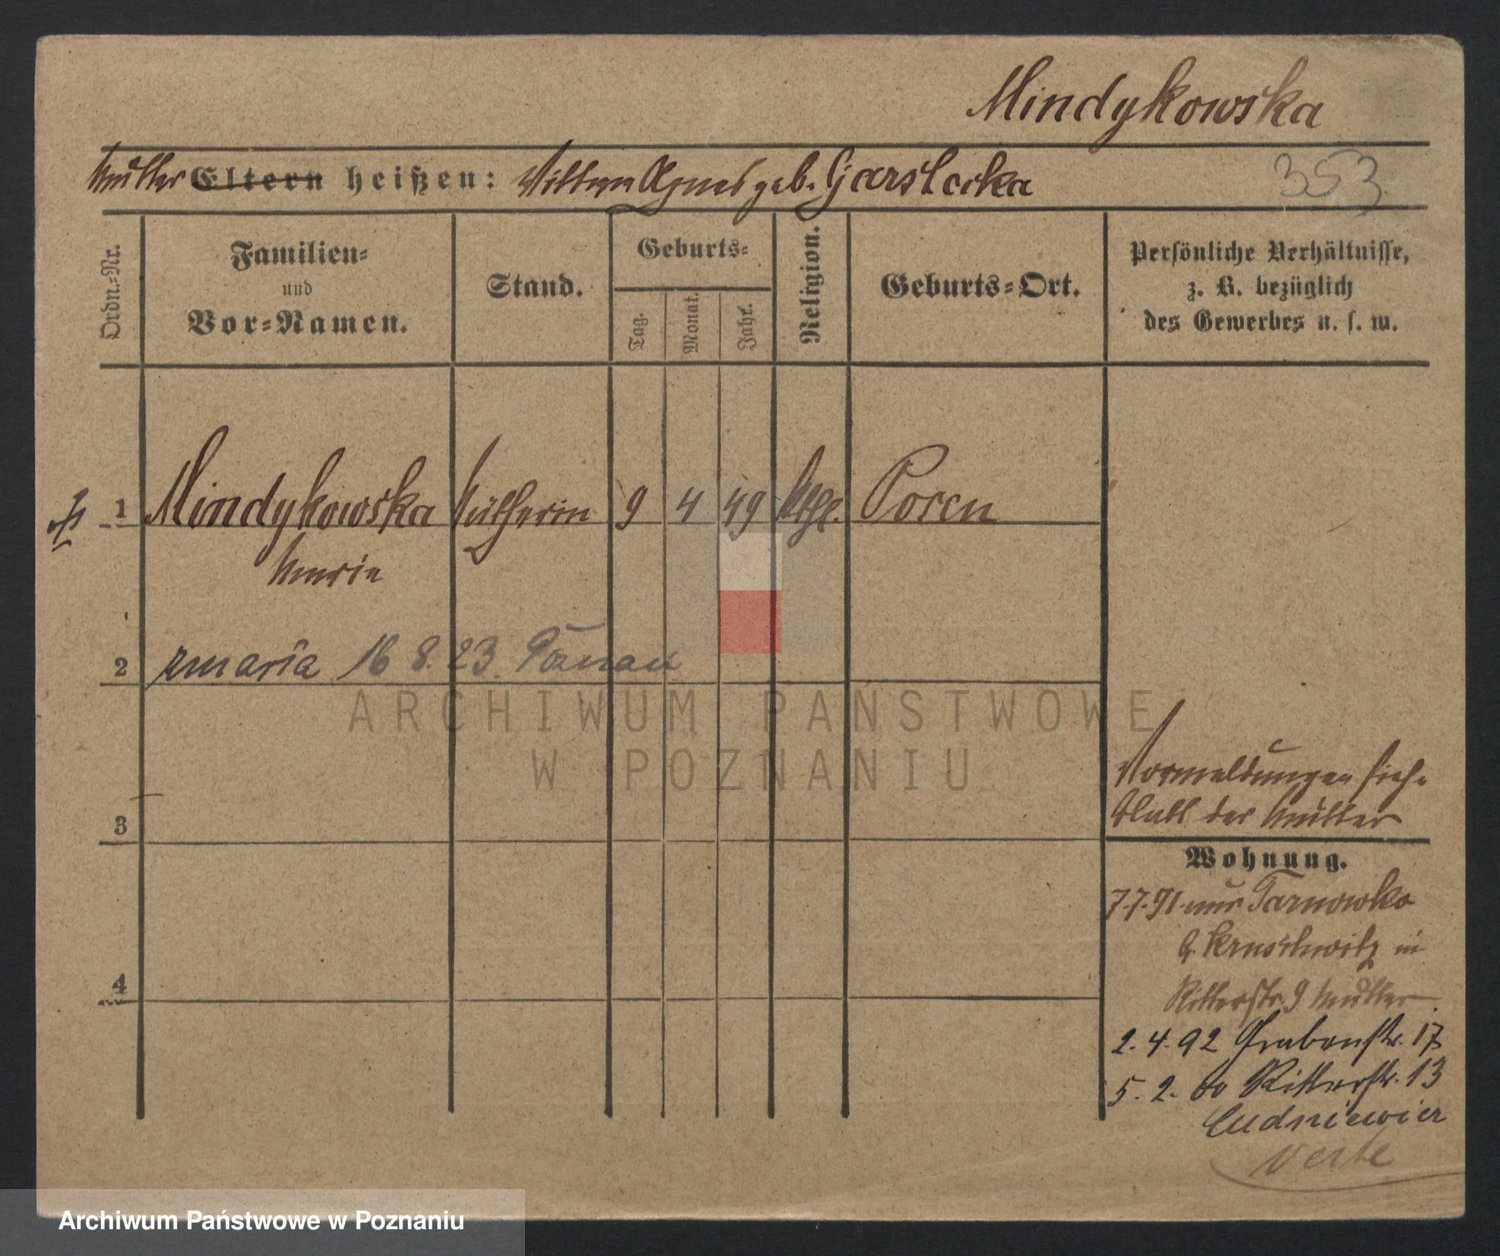 Mindykowska
353
Mutter Eltern heißen: Wittwe Agnes geb. Gjarstecka
Ordn.-Nr.
Familien-
und
Vor-Namen.
Stand.
Geburts-
Tag.
Monat.
Jahr.
Religion.
Geburts-Ort.
Persönliche Verhältnisse,
z. B. bezüglich
des Gewerbes u. s. w.
1 Mindykowska 9 4 49 kath. Posen
Marie
2 zmarła 16 8. 23. Poznań
3
Vormeldungen siehe
Blatt der Mutter
Wohnung.
7.7.91 aus Tarnowko
b. Kruschwitz in
Ritterstr 9 Mutter
4
2. 4. 92 Grabenstr. 17
5. 2. 00 Ritterstr. 13
verte
ARCHIWUM PAŃSTWOWE
W POZNANIU
Archiwum Państwowe w Poznaniu